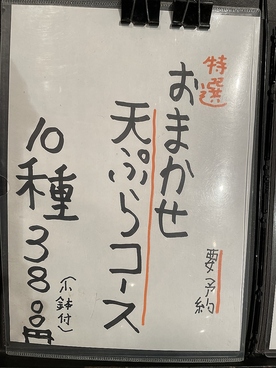 特選
おまかせ
要予約
天ぷらコース
10種3800円
(小鉢付)